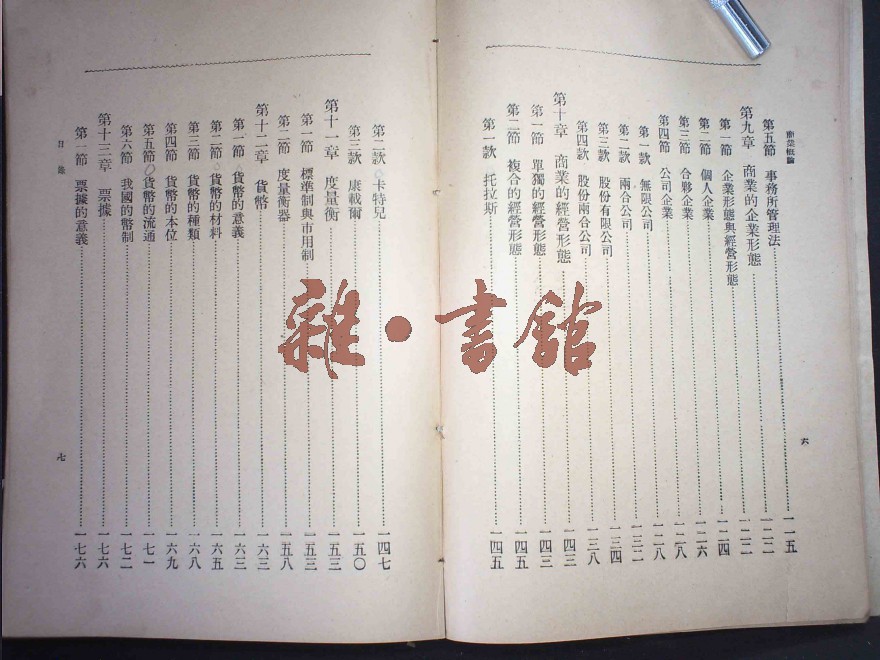 商業概論
第五節 事務所管理法…………一一五
第九章 商業的企業形態…………一二二
第一節 企業形態與經營形態…………一二二
第二節 個人企業…………一二四
第三節 合夥企業…………一二六
第四節 公司企業…………一二八
第一款 無限公司…………一二八
第二款 兩合公司…………一三二
第三款 股份有限公司…………一三四
第四款 股份兩合公司…………一三八
第十章 商業的經營形態…………一四三
第一節 單獨的經營形態…………一四三
第二節 複合的經營形態…………一四五
第一款 托拉斯…………一四五
六
第二款 卡特兒…………一四七
第三款 康載爾…………一五〇
第十一章 度量衡…………一五三
第一節 標準制與市用制…………一五三
第二節 度量衡器…………一五八
第十二章 貨幣…………一六三
第一節 貨幣的意義…………一六三
第二節 貨幣的材料…………一六五
第三節 貨幣的種類…………一六八
第四節 貨幣的本位…………一六九
第五節 貨幣的流通…………一七一
第六節 我國的幣制…………一七二
第十三章 票據…………一七六
第一節 票據的意義…………一七六
目錄
七
雜·書館